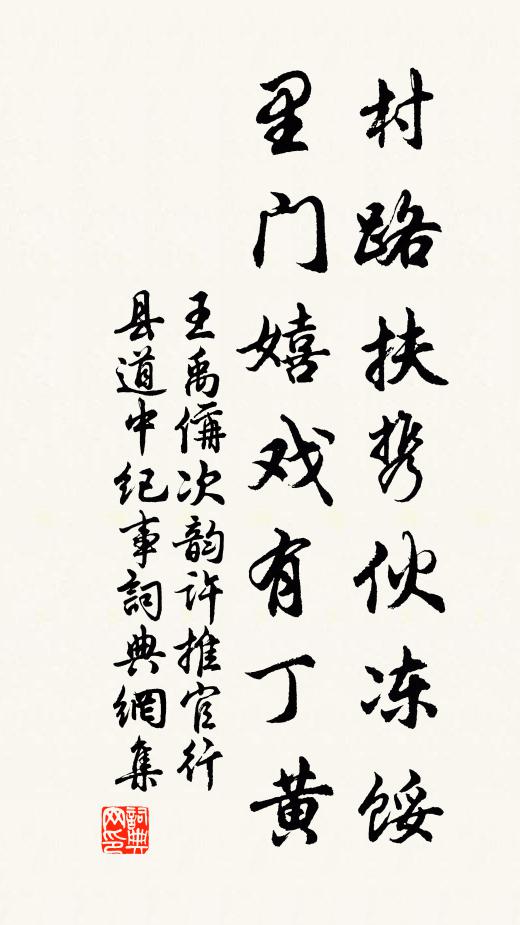 村路扶携伙冻馁
里门嬉戏有丁黄
王禹偁次韵许推官行
县道中纪事詞典網集
詞典网印